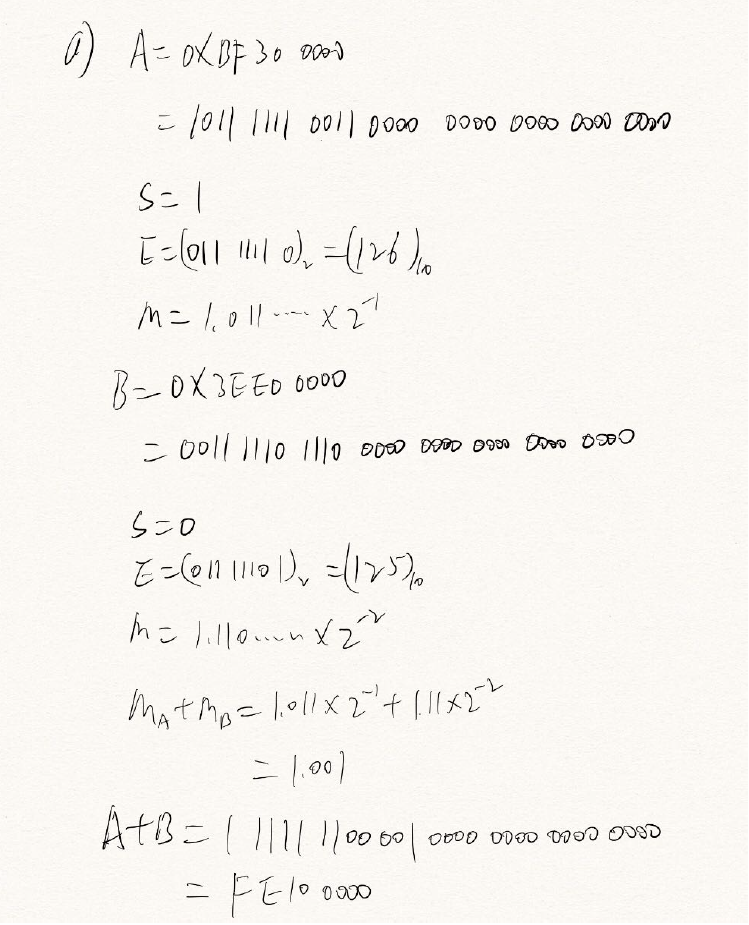 a) A = 0XBF30 0000
= 1011 1111 0011 0000 0000 0000 0000 0000
S = 1
E = (011 1111 0)₂ = (126)₁₀
m = 1.011 ····· × 2⁻¹
B = 0X3EE0 0000
= 0011 1110 1110 0000 0000 0000 0000 0000
S = 0
E = (011 1110 1)₂ = (125)₁₀
m = 1.110 ····· × 2⁻²
m_A + m_B = 1.011 × 2⁻¹ + 1.11 × 2⁻²
= 1.001
A+B = 1 1111 1100 001 0000 0000 0000 0000
= FE10 0000